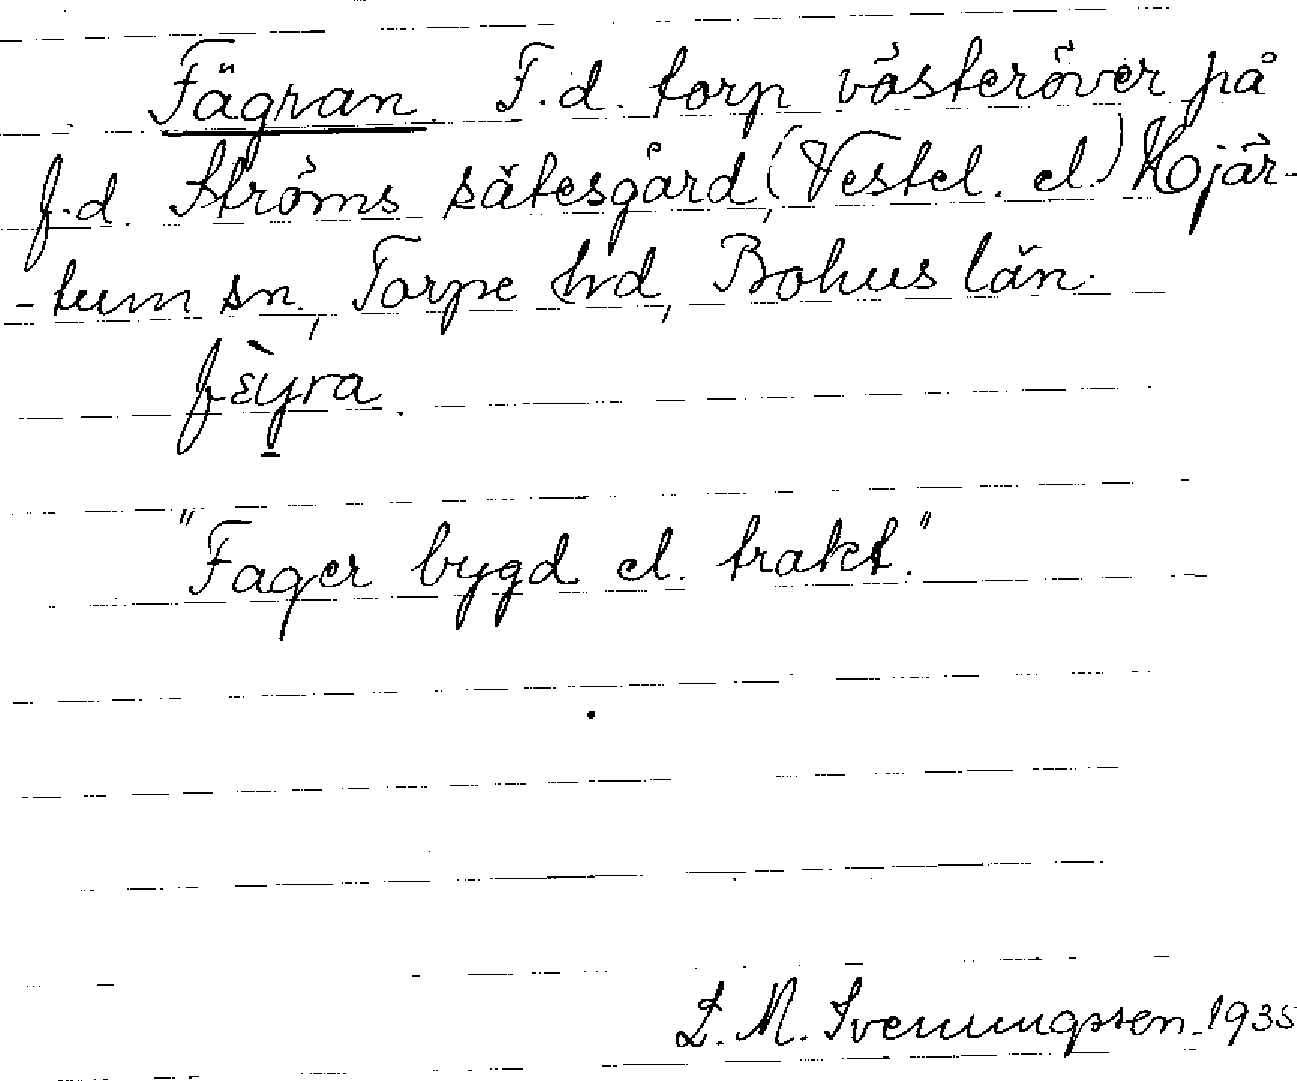 Fägran. F.d. torp västeröver på
f.d. Ströms sätesgård, (Vestel. el.) Hjär-
-tum sn., Torpe hrd, Bohus län.
fɛ̀yra.
"Fager bygd el. trakt."
L. M. Svenungsson. 1935